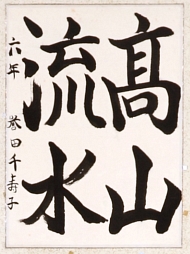 髙山
流水
六年 誉田千壽子